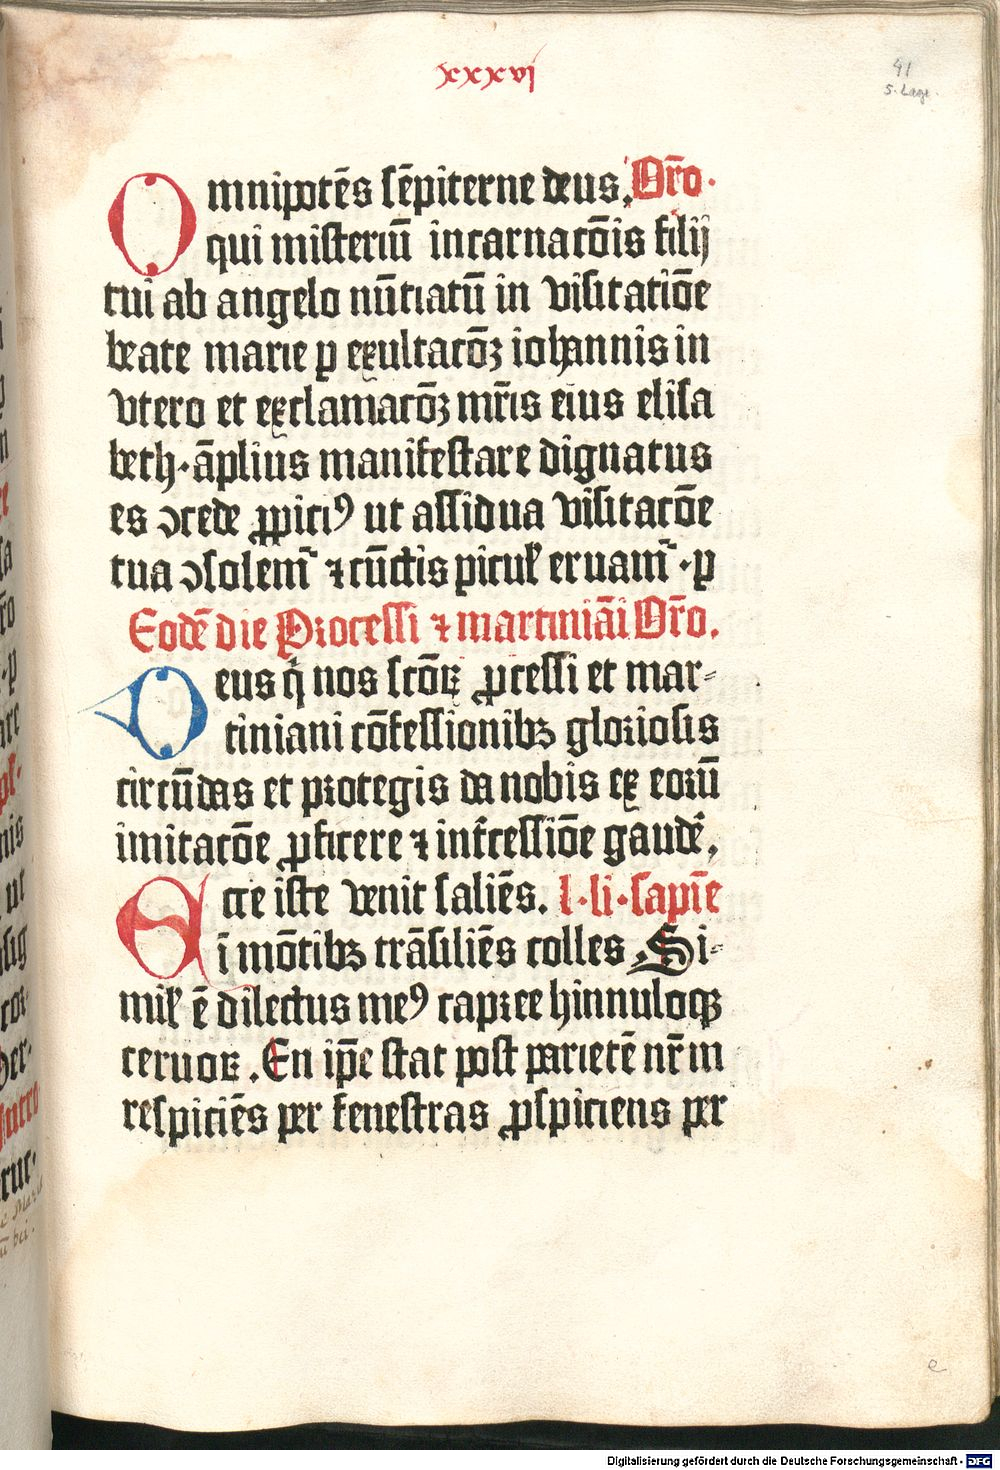 xxxvi
41
5. Lage.
Omnipotēs sēpiterne deus. Or̄o.
qui misteriū incarnacōis filij
tui ab angelo nūtiatū in visitatiōe
beate marie ꝑ exultacōꝫ iohannis in
vtero et exclamacōꝫ mr̄is eius elisa
beth. āplius manifestare dignatus
es ↄcede ꝓpiciꝰ ut assidua visitacōe
tua ↄsolem᷑ ⁊ cūctis picul̓ eruam᷑. ꝑ
Eodē die Processi ⁊ martiniāi Or̄o.
Deus q̇ nos scōꝝ ꝓcessi et mar⸗
tiniani cōfessionibꝫ gloriosis
circūdas et protegis da nobis ex eorū
imitacōe ꝓficere ⁊ int̄cessiōe gaudē,
Ecce iste venit saliēs. l. li. sapīe
ī mōtibꝫ trāsiliēs colles, Si⸗
mil̓ ē dilectus meꝰ capree hinnuloqꝫ
ceruoꝝ. En ip̄e stat post parietē nr̄m
respiciēs per fenestras ꝓspiciens per
e
Digitalisierung gefördert durch die Deutsche Forschungsgemeinschaft - DFG